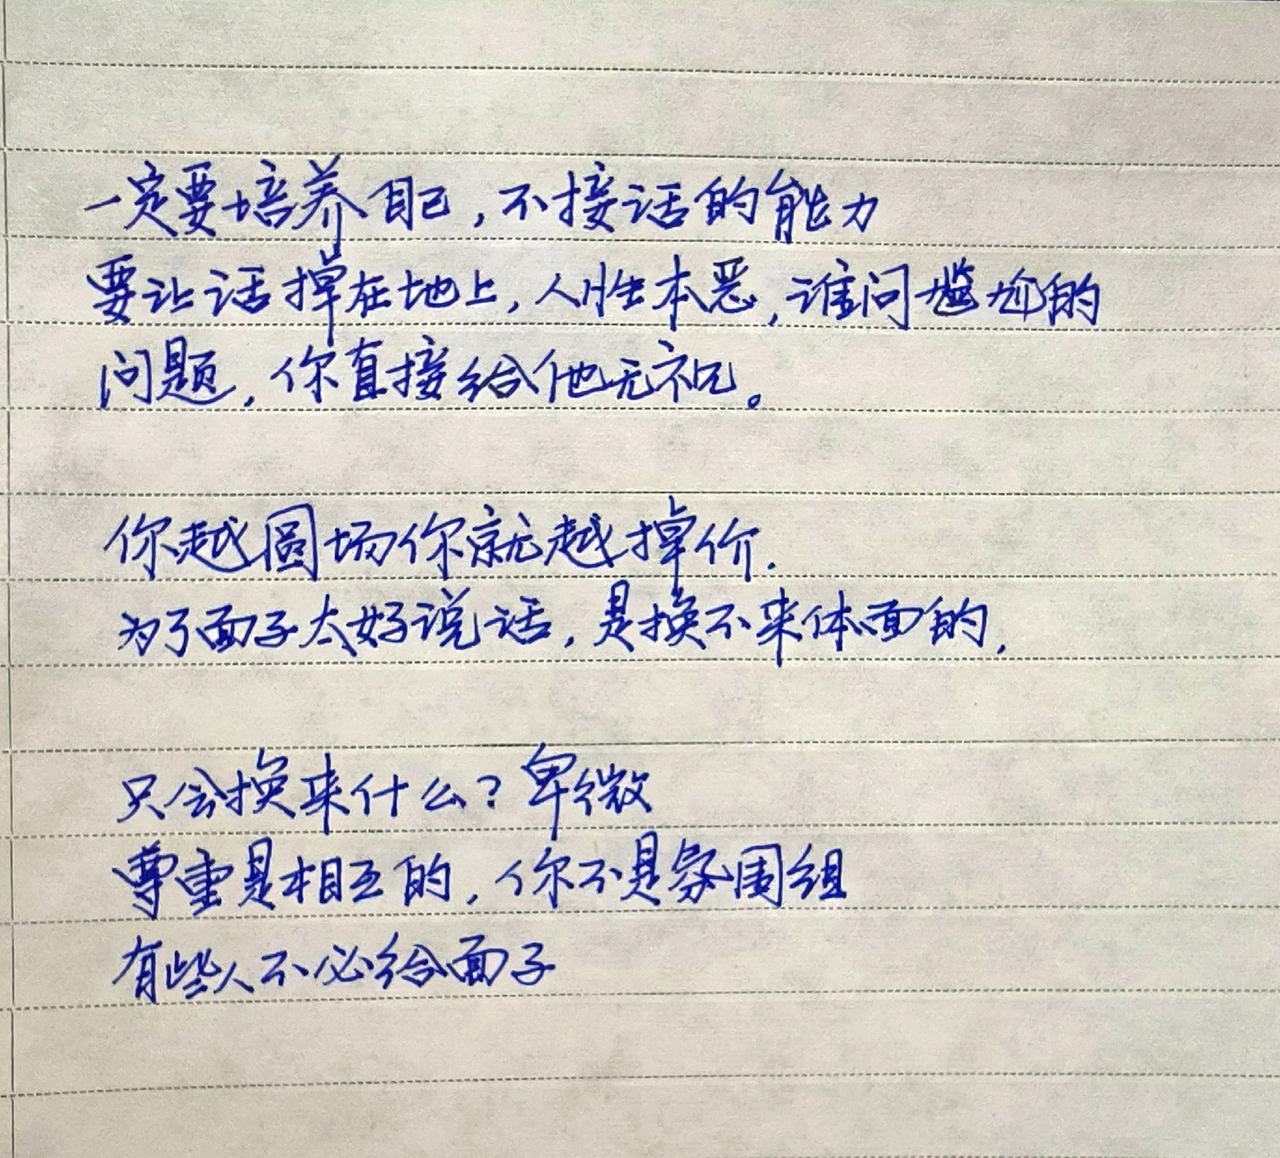 一定要培养自己,不接话的能力
要让话掉在地上,人性本恶,谁问尴尬的
问题,你直接给他无视。
你越圆场你就越掉价.
为了面子太好说话,是换不来体面的,
只会换来什么?卑微
尊重是相互的,你不是氛围组
有些人不必给面子